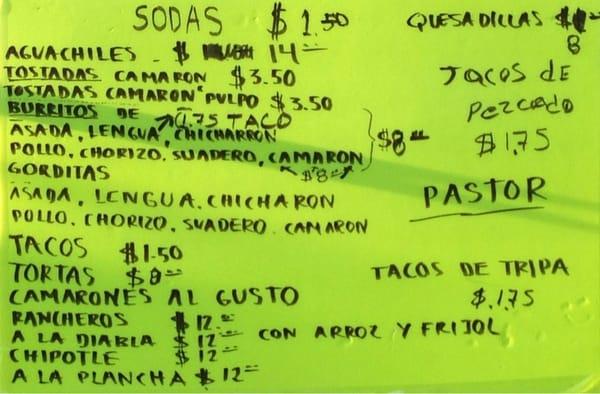 SODAS $1.50
AGUACHILES $14
TOSTADAS CAMARON $3.50
TOSTADAS CAMARON PULPO $3.50
BURRITOS DE 1.75 TACO
ASADA, LENGUA, CHICHARRON
POLLO, CHORIZO, SUADERO, CAMARON
$8
GORDITAS $8
ASADA, LENGUA, CHICHARON
POLLO, CHORIZO, SUADERO, CAMARON
TACOS $1.50
TORTAS $8
CAMARONES AL GUSTO
RANCHEROS $12
A LA DIABLA $12 CON ARROZ Y FRIJOL
CHIPOTLE $12
A LA PLANCHA $12
QUESADILLAS $
8
TACOS DE
PEZCADO
$1.75
PASTOR
TACOS DE TRIPA
$.1.75